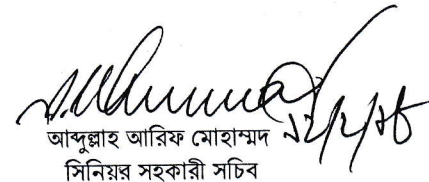 আব্দুল্লাহ আরিফ মোহাম্মদ
সিনিয়র সহকারী সচিব